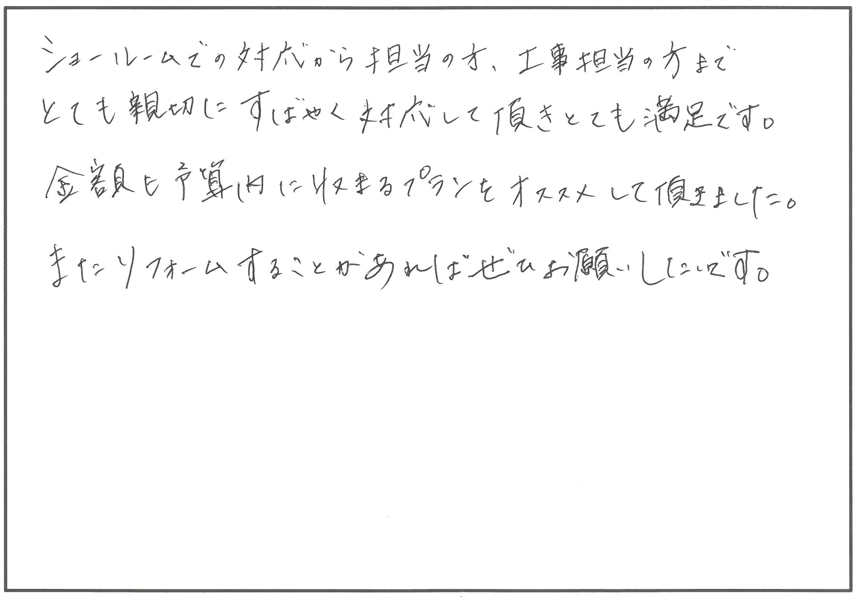 ショールームでの対応から担当の方、工事担当の方まで
とても親切にすばやく対応して頂きとても満足です。
金額も予算内に収まるプランをオススメして頂きました。
またリフォームすることがあればぜひお願いしたいです。